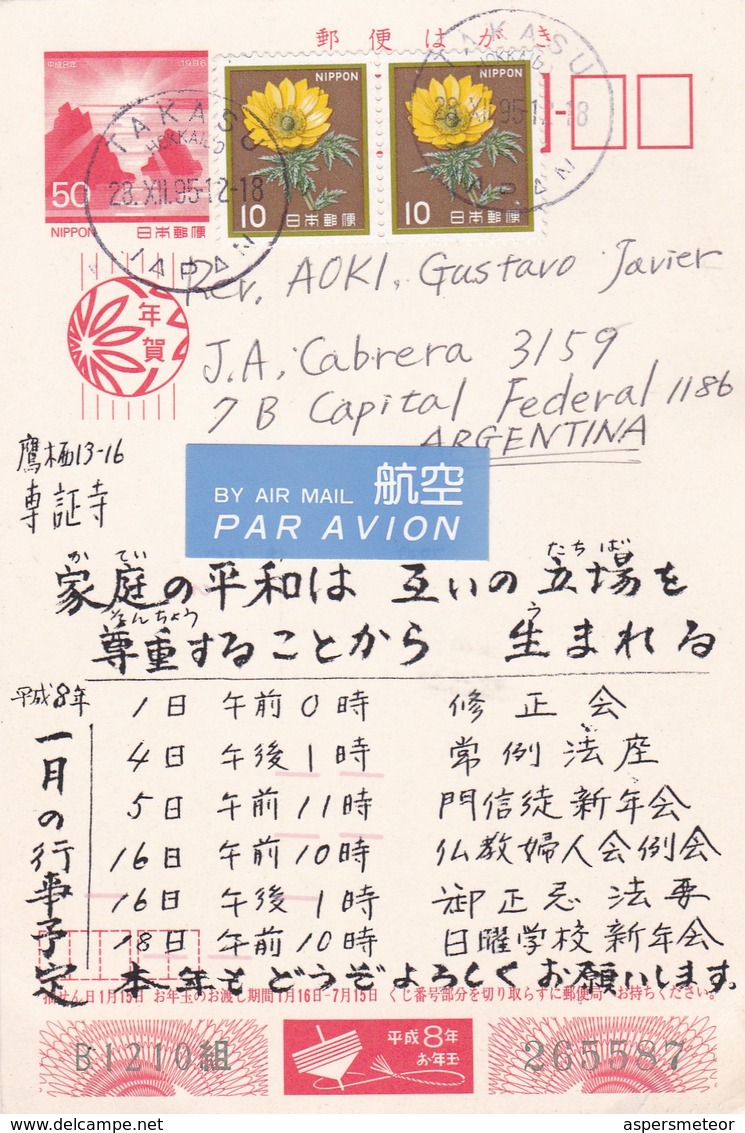 郵便はがき
平成8年 1996
50
NIPPON 日本郵便
NIPPON
10 日本郵便
NIPPON
10 日本郵便
TAKASU
HOKKAIDO
28.XII.95-12-18
JAPAN
TAKASU
HOKKAIDO
28.XII.95-12-18
JAPAN
年賀
Rev. AOKI, Gustavo Javier
J.A. Cabrera 3159
7B Capital Federal 1186
ARGENTINA
鷹栖13-16
専証寺
BY AIR MAIL 航空
PAR AVION
かてい たちば
家庭の平和は 互いの立場を
そんちょう う
尊重することから 生まれる
平成8年
一月の行事予定
1日 午前0時 修正会
4日 午後1時 常例法座
5日 午前11時 門信徒新年会
16日 午前10時 仏教婦人会例会
16日 午後1時 御正忌法要
18日 午前10時 日曜学校新年会
本年もどうぞよろしくお願いします。
抽せん日1月15日 お年玉のお渡し期間1月16日-7月15日 くじ番号部分を切り取らずに郵便局へお持ちください。
B1210組
平成8年
お年玉
265587
aspersmeteor